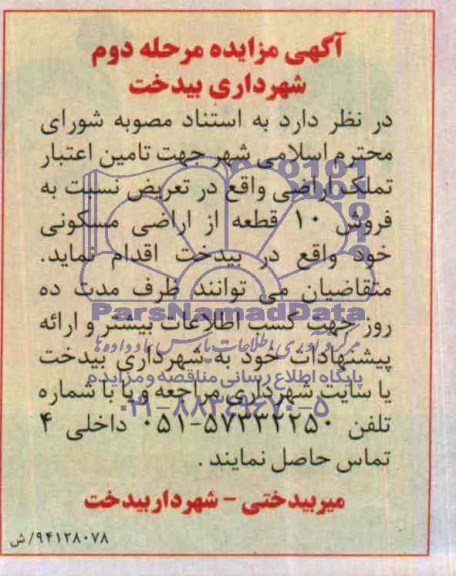 آگهی مزایده مرحله دوم
شهرداری بیدخت
در نظر دارد به استناد مصوبه شورای
محترم اسلامی شهر جهت تامین اعتبار
تملک اراضی واقع در تعریض نسبت به
فروش ۱۰ قطعه از اراضی مسکونی
خود واقع در بیدخت اقدام نماید.
متقاضیان می توانند ظرف مدت ده
ParsNamadData
روز جهت کسب اطلاعات بیشتر و ارائه
مرکز فرآوری اطلاعات پارس نماد داده ها
پیشنهادات خود به شهرداری بیدخت
پایگاه اطلاع رسانی مناقصه و مزایده
یا سایت شهرداری مراجعه و یا با شماره
۰۲۱-۸۸۳۴۹۶۷۰-۵
تلفن ۵۷۳۳۲۲۵۰-۰۵۱ داخلی ۴
تماس حاصل نمایند .
میربیدختی - شهردار بیدخت
۹۴۱۲۸۰۷۸/ش